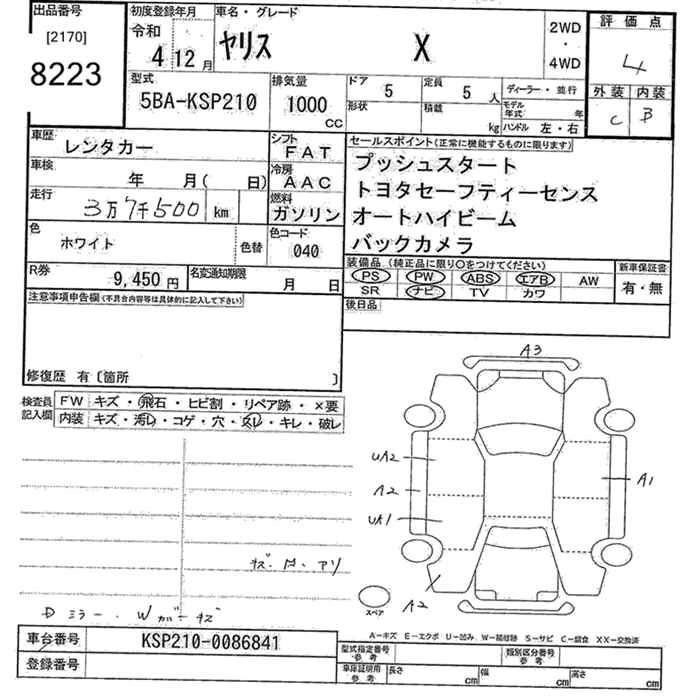 出品番号
[2170]
8223
初度登録年月
令和
4 12月
車名・グレード
ヤリス X
2WD
・
4WD
評価点
4
外装 内装
C B
型式
5BA-KSP210
排気量
1000
CC
ドア
5
定員
5 人
形状
積載
kg
ディーラー・並行
モデル年式 年
ハンドル 左・右
車歴
レンタカー
シフト
FAT
車検
年 月( 日)
冷房
AAC
走行
3万7千500 km
燃料
ガソリン
色
ホワイト
色替
色コード
040
セールスポイント(正常に機能するものに限ります)
プッシュスタート
トヨタセーフティーセンス
オートハイビーム
バックカメラ
R券
9,450 円
名変通知期限
月 日
装備品 (純正品に限り○をつけてください)
PS PW ABS エアB AW
SR ナビ TV カワ
新車保証書
有・無
注意事項申告欄(不具合内容等は具体的に記入して下さい)
後日品
修復歴 有〔箇所 〕
検査員記入欄
FW キズ・飛石・ヒビ割・リペア跡・×要
内装 キズ・汚レ・コゲ・穴・スレ・キレ・破レ
A3
UA2
A2
A1
UA1
A2
スペア
Dミラー、Wガーキズ
A-キズ E-エクボ U-凹み W-補修跡 S-サビ C-腐食 XX-交換済
車台番号
KSP210-0086841
登録番号
型式指定番号参考
類別区分番号参考
車庫証明用参考
長さ cm
幅 cm
高さ cm